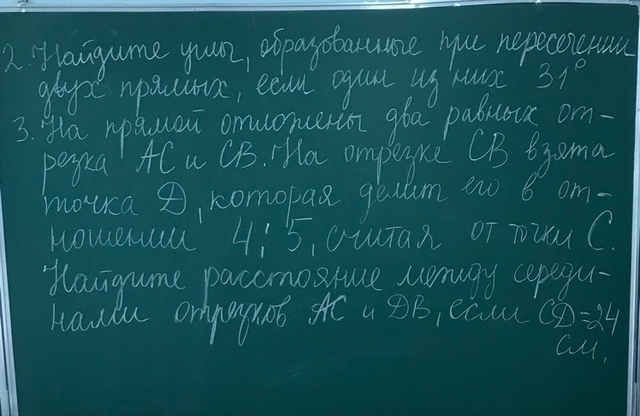 2. Найдите углы, образованные при пересечении
двух прямых, если один из них 31°
3. На прямой отложены два равных от-
резка АС и СВ. На отрезке СВ взята
точка Д, которая делит его в от-
ношении 4:5, считая от точки С.
Найдите расстояние между середи-
нами отрезков АС и ДВ, если СД=24
см.